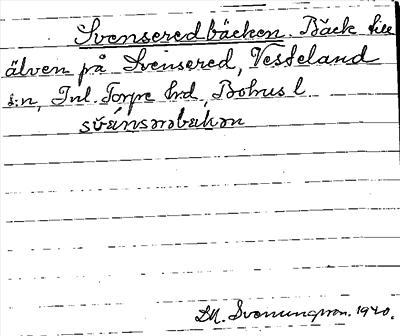 Svenseredbäcken. Bäck till
älven på Svensered, Vesseland
s:n, Inl. Torpe hd, Bohus l.
svánsərəbækən
LM. Svenungsson. 1940.